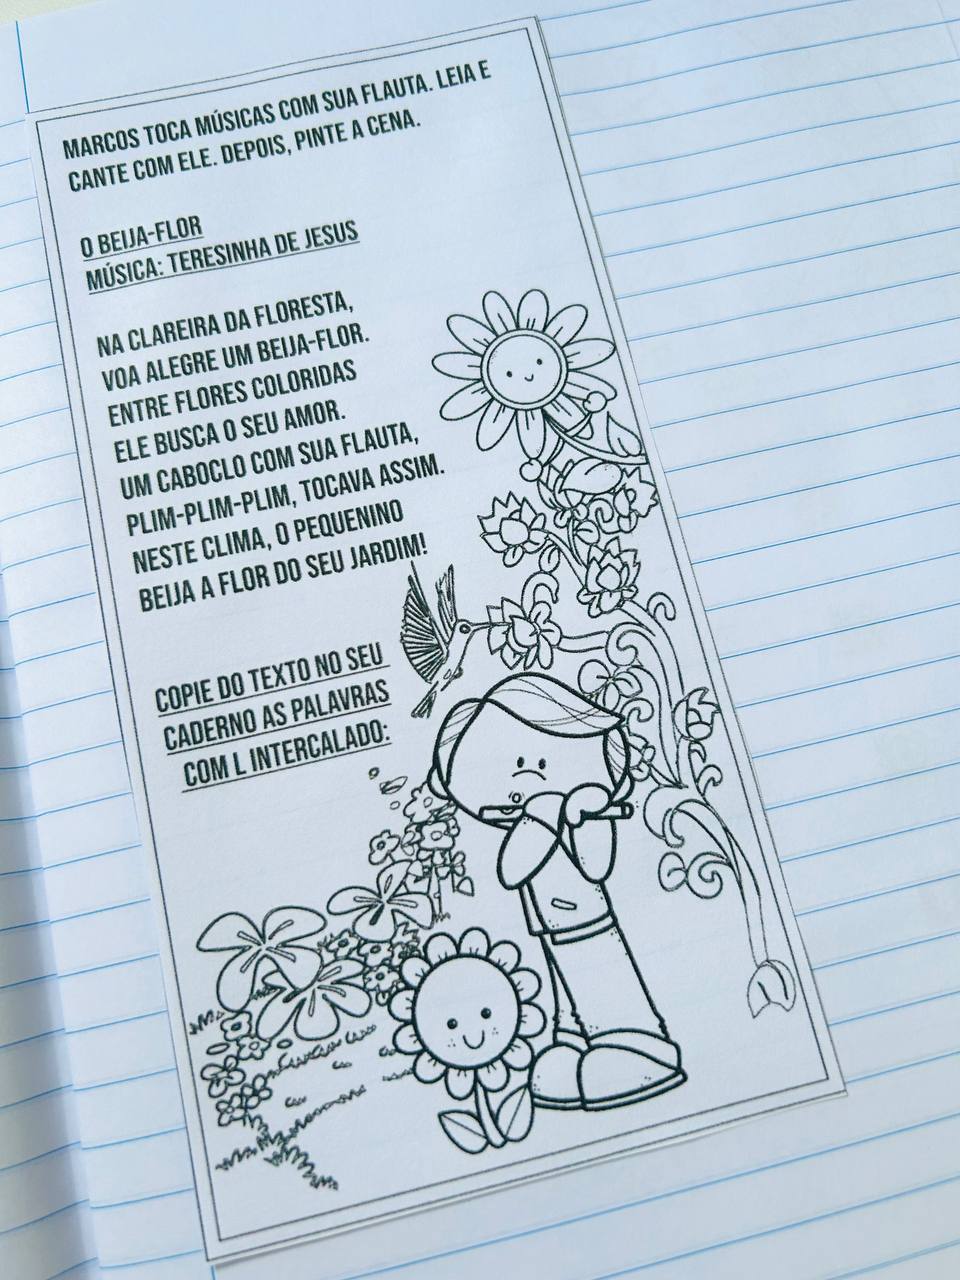 MARCOS TOCA MÚSICAS COM SUA FLAUTA. LEIA E
CANTE COM ELE. DEPOIS, PINTE A CENA.
O BEIJA-FLOR
MÚSICA: TERESINHA DE JESUS
NA CLAREIRA DA FLORESTA,
VOA ALEGRE UM BEIJA-FLOR.
ENTRE FLORES COLORIDAS
ELE BUSCA O SEU AMOR.
UM CABOCLO COM SUA FLAUTA,
PLIM-PLIM-PLIM, TOCAVA ASSIM.
NESTE CLIMA, O PEQUENINO
BEIJA A FLOR DO SEU JARDIM!
COPIE DO TEXTO NO SEU
CADERNO AS PALAVRAS
COM L INTERCALADO: